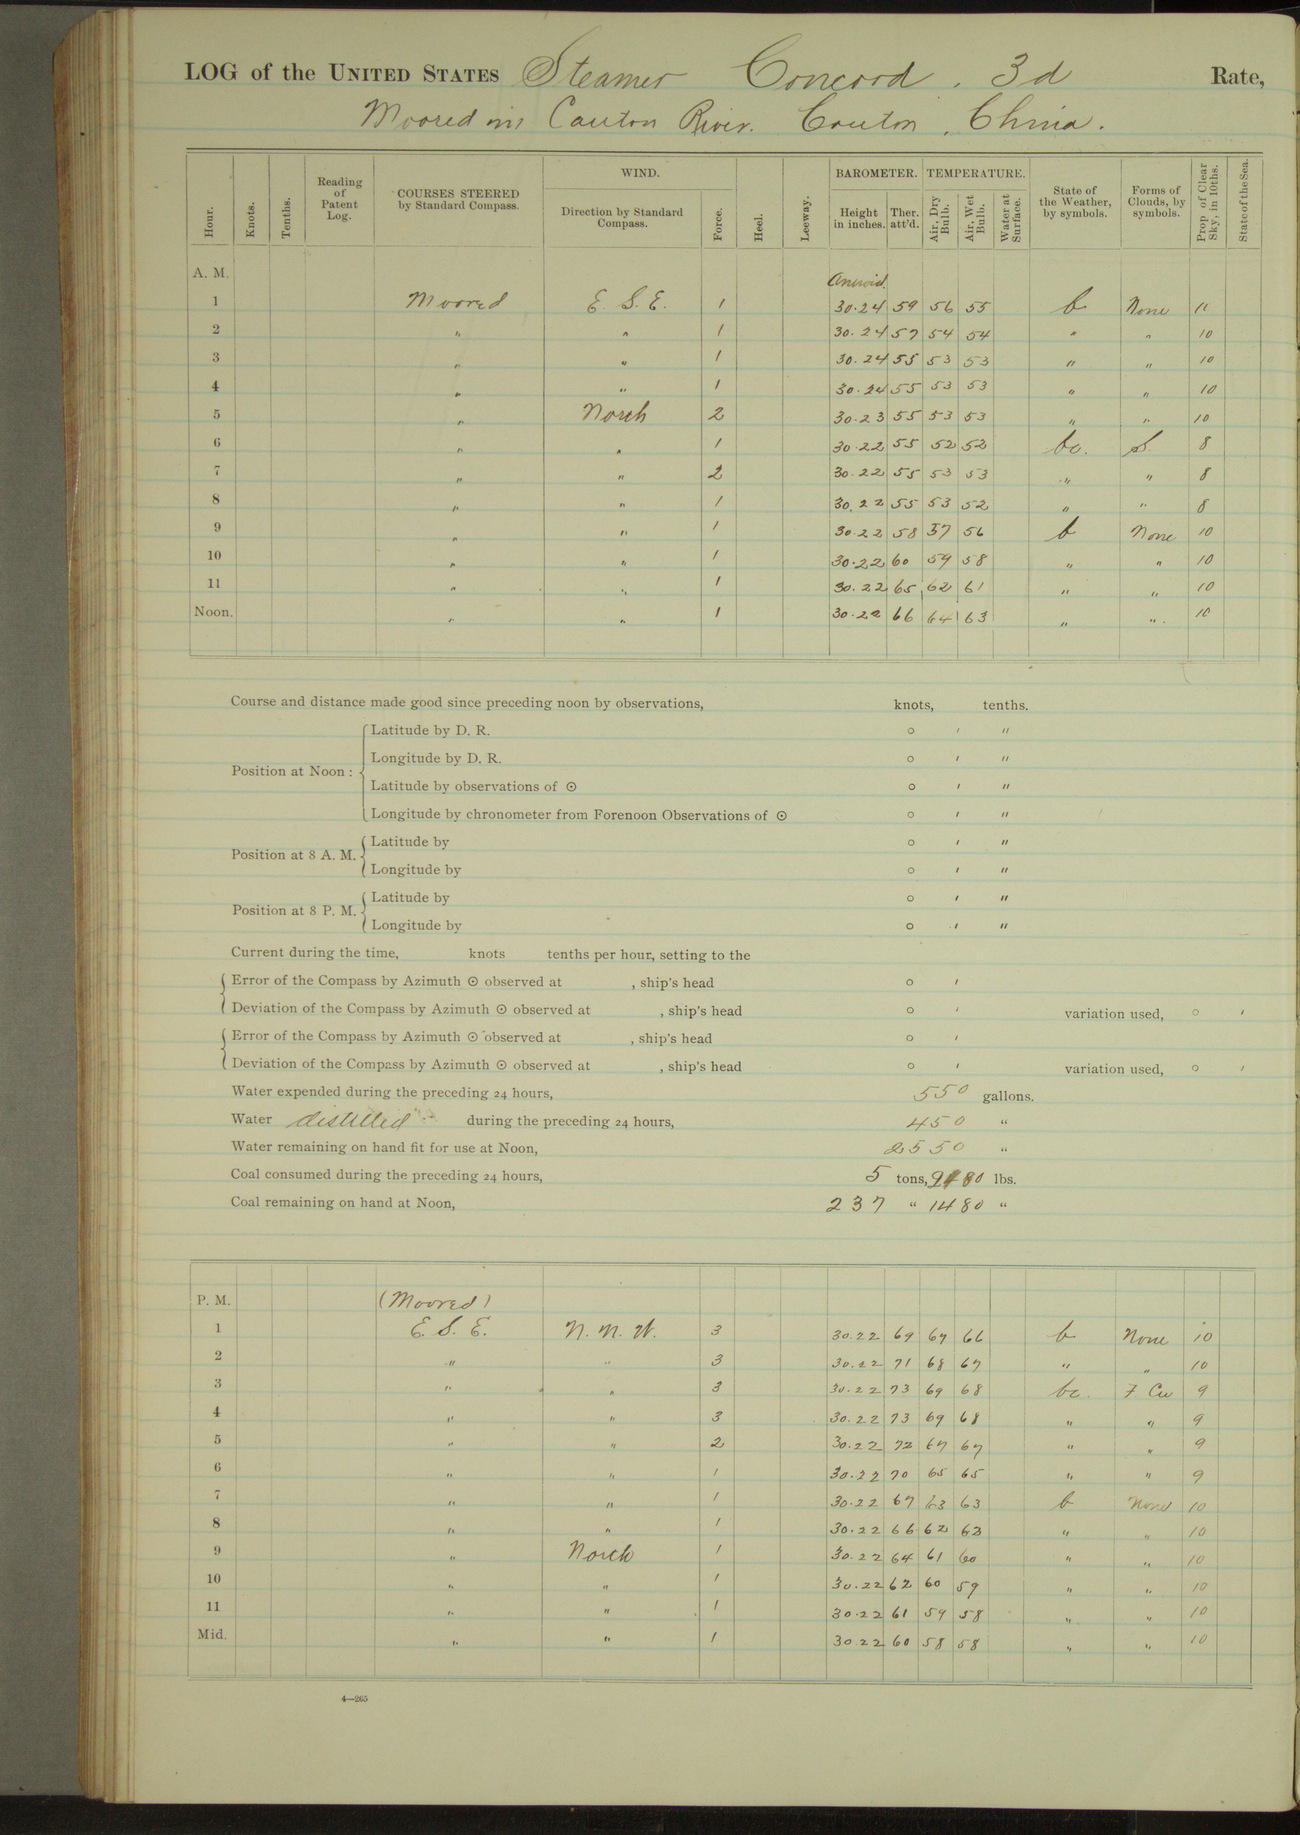 LOG of the UNITED STATES Steamer Concord. 3d Rate,
Moored in Canton River. Canton, China.
Hour. Knots. Tenths. Reading of Patent Log. COURSES STEERED by Standard Compass. WIND. Direction by Standard Compass. Force. Heel. Leeway. BAROMETER. Height in inches. Ther. att'd. TEMPERATURE. Air, Dry Bulb. Air, Wet Bulb. Water at Surface. State of the Weather, by symbols. Forms of Clouds, by symbols. Prop. of Clear Sky, in 10ths. State of the Sea.
A. M. Aneroid.
1 Moored E. S. E. 1 30.24 59 56 55 b None "
2 " " 1 30.24 57 54 54 " " 10
3 " " 1 30.24 55 53 53 " " 10
4 " " 1 30.24 55 53 53 " " 10
5 " North 2 30.23 55 53 53 " " 10
6 " " 1 30.22 55 52 52 bc. S. 8
7 " " 2 30.22 55 53 53 " " 8
8 " " 1 30.22 55 53 52 " " 8
9 " " 1 30.22 58 57 56 b None 10
10 " " 1 30.22 60 59 58 " " 10
11 " " 1 30.22 65 62 61 " " 10
Noon. " " 1 30.22 66 64 63 " " 10
Course and distance made good since preceding noon by observations, knots, tenths.
Position at Noon: Latitude by D. R. ° ′ ″
Longitude by D. R. ° ′ ″
Latitude by observations of ☉ ° ′ ″
Longitude by chronometer from Forenoon Observations of ☉ ° ′ ″
Position at 8 A. M. Latitude by ° ′ ″
Longitude by ° ′ ″
Position at 8 P. M. Latitude by ° ′ ″
Longitude by ° ′ ″
Current during the time, knots tenths per hour, setting to the
Error of the Compass by Azimuth ☉ observed at , ship's head ° ′
Deviation of the Compass by Azimuth ☉ observed at , ship's head ° ′ variation used, ° ′
Error of the Compass by Azimuth ☉ observed at , ship's head ° ′
Deviation of the Compass by Azimuth ☉ observed at , ship's head ° ′ variation used, ° ′
Water expended during the preceding 24 hours, 550 gallons.
Water distilled during the preceding 24 hours, 450 "
Water remaining on hand fit for use at Noon, 2550 "
Coal consumed during the preceding 24 hours, 5 tons, lbs.
Coal remaining on hand at Noon, 237 " 1480 "
P. M. (Moored)
1 E. S. E. N. N. W. 3 30.22 69 67 66 b None 10
2 " " 3 30.22 71 68 67 " " 10
3 " " 3 30.22 73 69 68 bc. F Cu 9
4 " " 3 30.22 73 69 68 " " 9
5 " " 2 30.22 72 67 67 " " 9
6 " " 1 30.22 70 65 65 " " 9
7 " " 1 30.22 67 63 63 b None 10
8 " " 1 30.22 66 62 62 " " 10
9 " North 1 30.22 64 61 60 " " 10
10 " " 1 30.22 62 60 59 " " 10
11 " " 1 30.22 61 59 58 " " 10
Mid. " " 1 30.22 60 58 58 " " 10
4—265